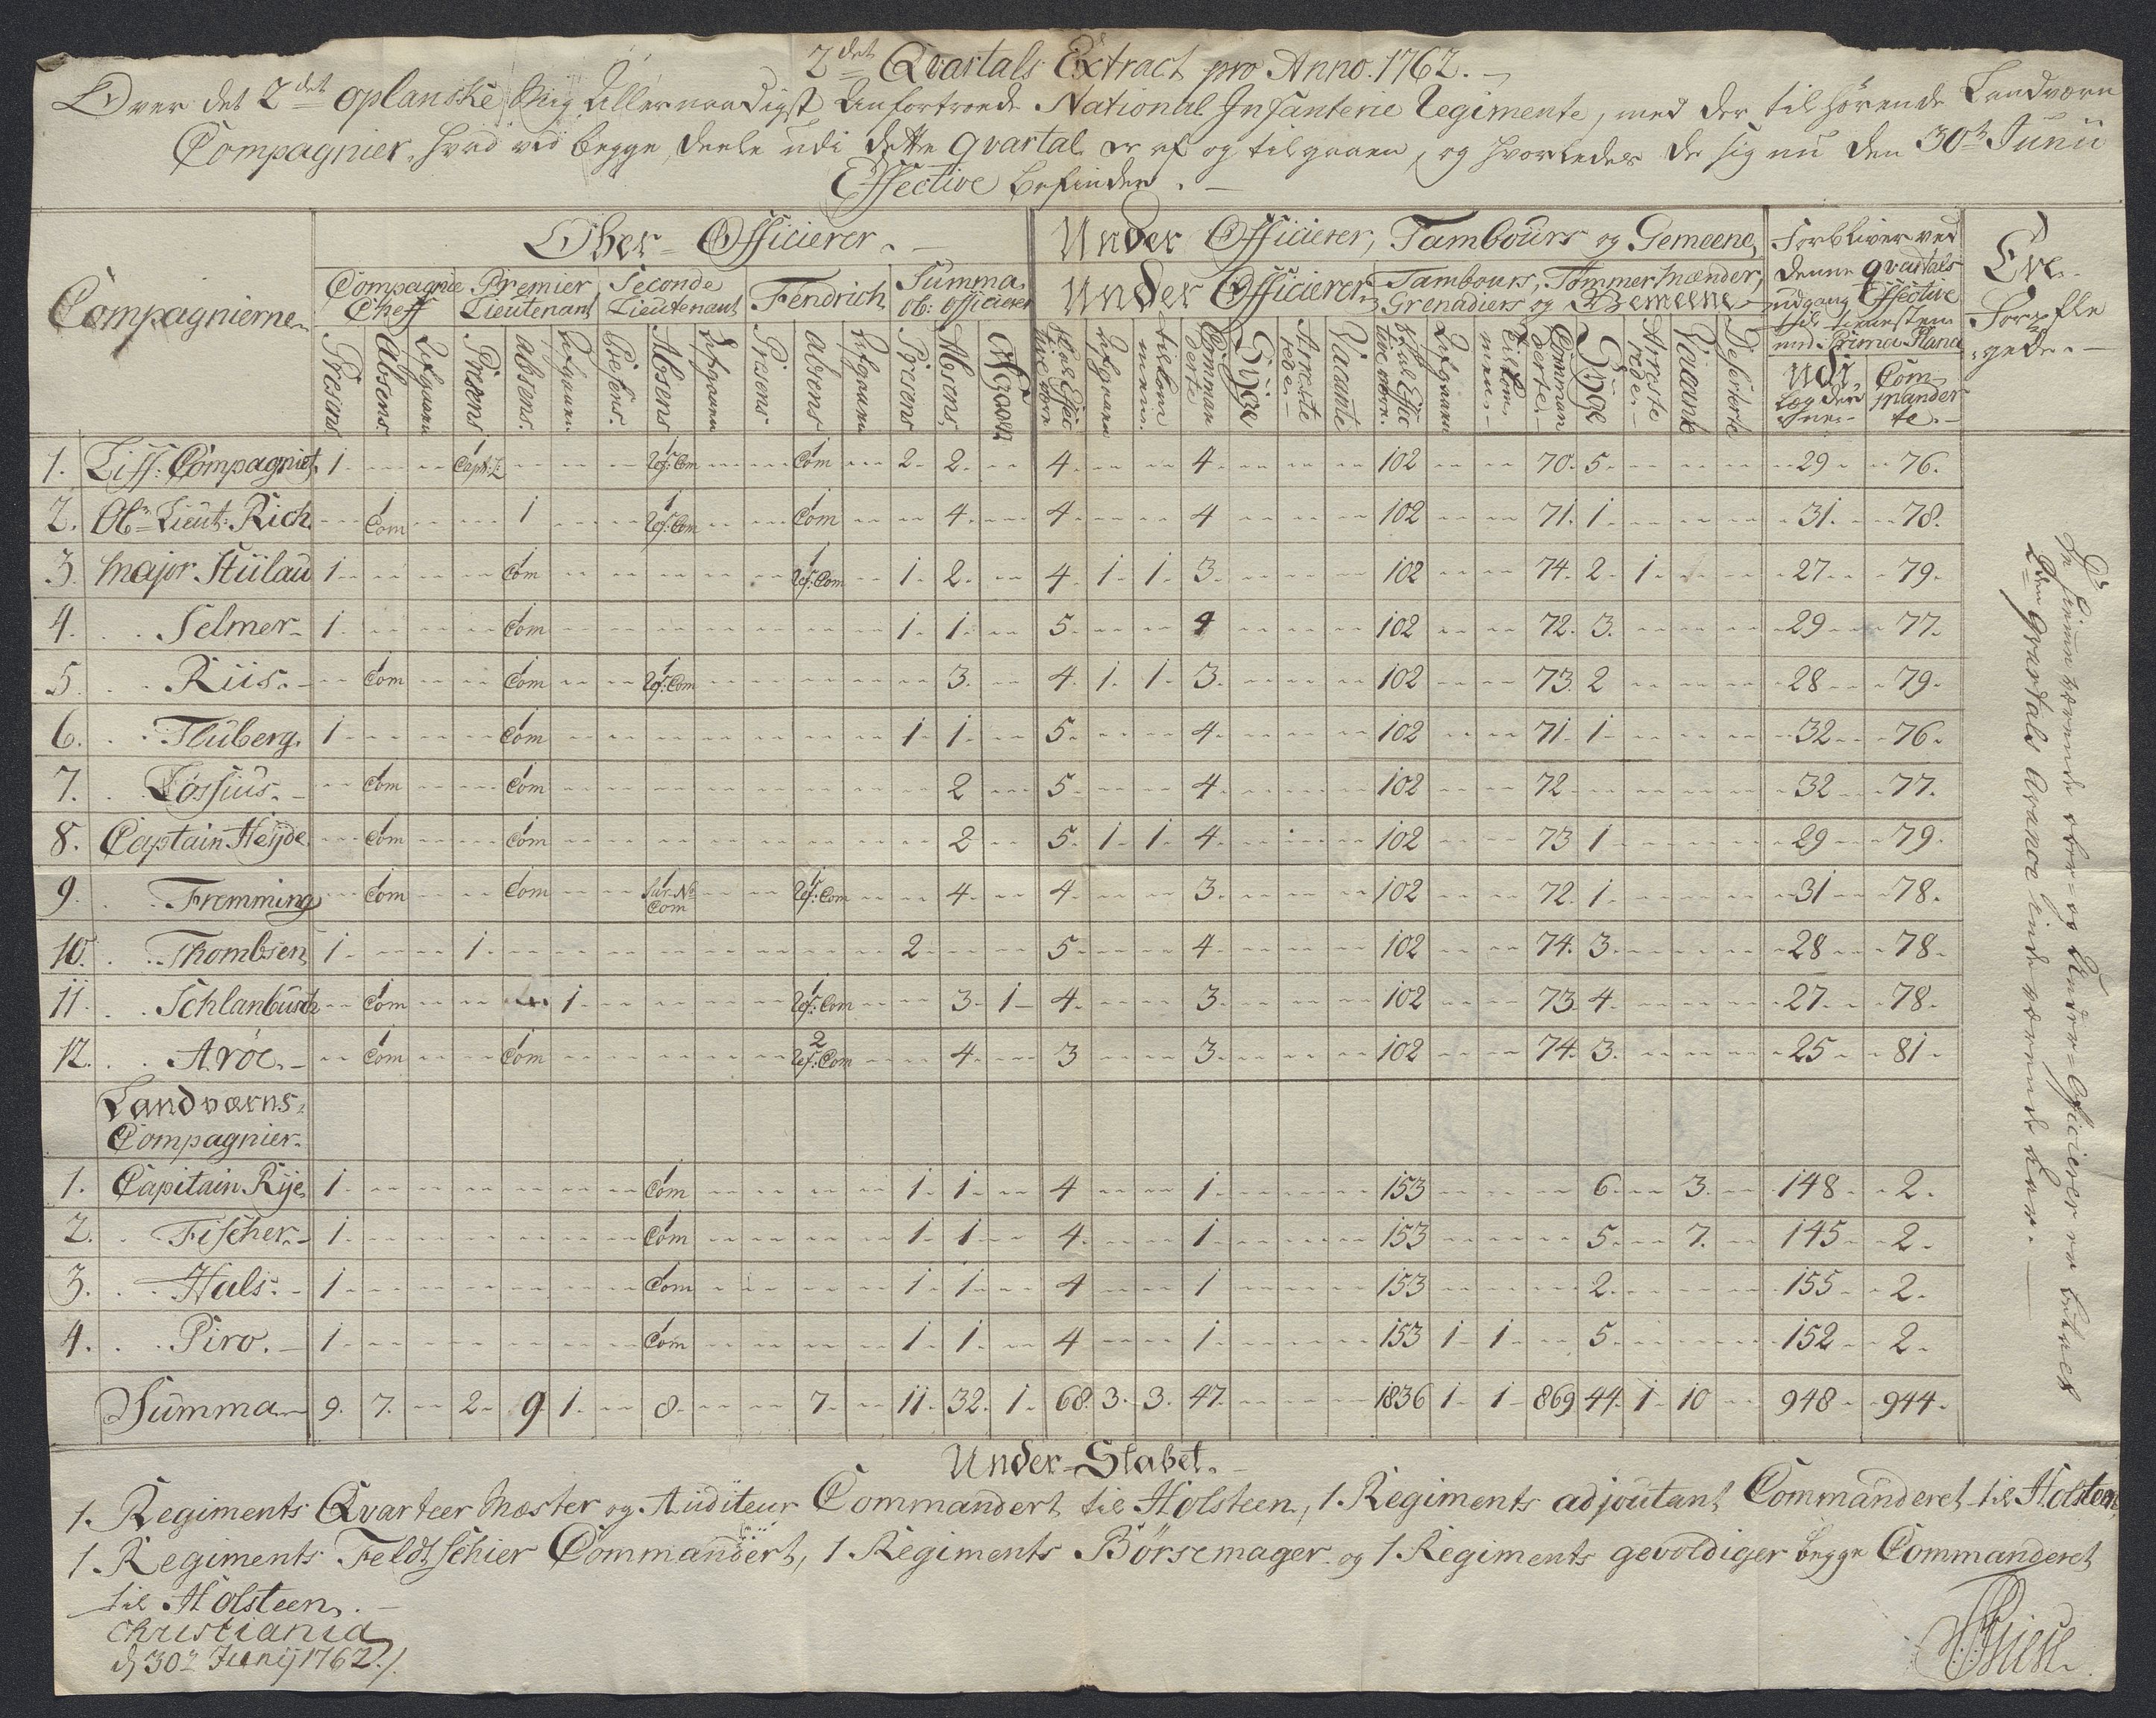 2det Qvartals Extract pro Anno 1762.
Over det 2det Oplanske Mig Allernaadigst Anfortroede National Infanterie Regimente, med der til hørende Landværn
Compagnier, hvad ved begge deele udi dette Qvartal er af og tilgaaen, og hvorledes de sig nu den 30te Junii
Effective befinder.
Compagnierne
Ober-Officierer.
Under Officierer, Tambours og Gemeene
Forbliver ved denne Qvartals udgang Effective til tienesten med Prima Plana
Compagnie Cheff
Premier Lieutenant
Seconde Lieutenant
Fendrich
Summa Ob: Officierer
Under Officierer
Tambours, Tømmermænder, Grenadiers og Gemeene
Presens Absens Afgaaen Presens Absens Afgaaen Presens Absens Afgaaen Presens Absens Afgaaen Presens Absens
Skal Effective være Afgaaen tilkommen Commanderte Syge Arresterede Vacante
Skal Effective være Afgaaen Tilkommen Commanderte Syge Arresterede Vacante Deserterte
Udi Lægderne Commanderte
1. Liff: Compagniet 1 1 Capt:L: 1 Ref:Com 1 Com 2 2 4 4 102 70 5 29 76
2. Obr Lieut: Rich 1 Com 1 1 Ref:Com 1 Com 4 4 4 102 71 1 31 78
3. Major Stülau 1 1 Com 1 Ref:Com 1 2 4 1 1 3 102 74 2 1 27 79
4. Selmer 1 1 Com 1 1 5 4 102 72 3 29 77
5. Riis 1 Com 1 Com 1 Ref:Com 3 4 1 1 3 102 73 2 28 79
6. Fluberg 1 1 Com 1 1 5 4 102 71 1 32 76
7. Lossius 1 Com 1 Com 2 5 4 102 72 32 77
8. Captain Heyde 1 Com 1 Com 2 5 1 1 4 102 73 1 29 79
9. Fremming 1 Com 1 Com 1 Sur No Com 1 Ref:Com 4 4 3 102 72 1 31 78
10. Thombsen 1 1 2 5 4 102 74 3 28 78
11. Schlanbusch 1 Com 1 1 Ref:Com 3 1 4 3 102 73 4 27 78
12. Aröe 1 Com 1 Com 2 Ref:Com 4 3 3 102 74 3 25 81
Landværns-
Compagnier
1. Capitain Rye 1 1 Com 1 1 4 1 153 6 3 148 2
2. Fischer 1 1 Com 1 1 4 1 153 5 7 145 2
3. Hals 1 1 Com 1 1 4 1 153 2 155 2
4. Piro 1 1 Com 1 1 4 1 153 1 1 5 152 2
Summa 9 7 2 9 1 8 7 11 32 1 68 3 3 47 1836 1 1 869 44 1 10 948 944
2den Qvartals
Under-Stabet.
1. Regiments Qvarteer Mæster og Auditeur Commandert til Holsteen, 1. Regiments adjoutant Commanderet til Holsteen,
1. Regiments Feldtschier Commandert, 1 Regiments Börsemager og 1 Regiments gevoldiger begge Commanderet
til Holsteen.
Christiania
d 30te Junij 1762.